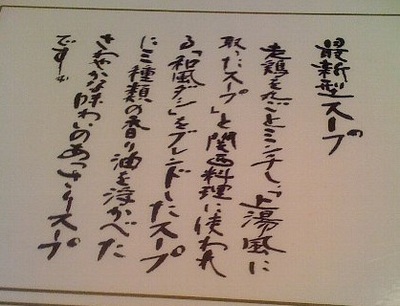 最新型スープ
老鶏を丸ごとミンチし、「上湯風に
取ったスープ」と関西料理に使われ
る「和風ダシ」をブレンドしたスープ
に三種類の香り油を浮かべた
さわやかな味わいのあっさりスープ
です